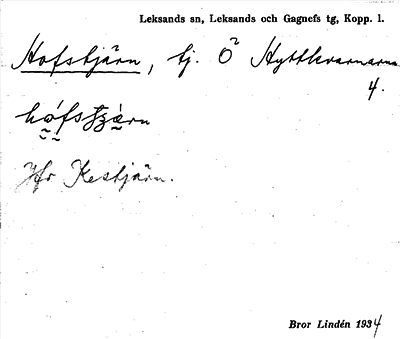 Leksands sn, Leksands och Gagnefs tg, Kopp. l.
Hofstjärn, tj. Ö² Hyttkvarnarna
4.
Jfr Kestjärn.
Bror Lindén 1934